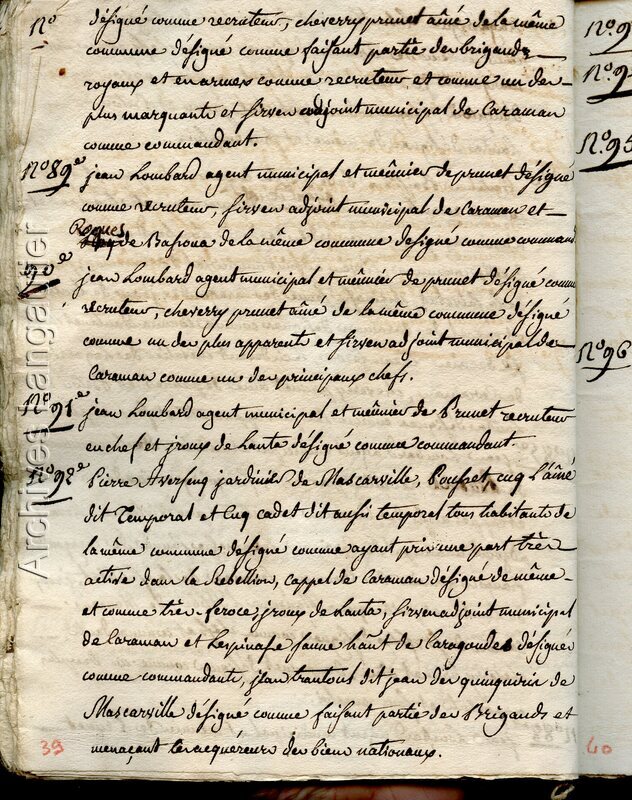 N°
désigné comme recruteur, cheverry prunet aîné de la même
commune désigné comme faisant partie des brigands
royaux et en armes comme recruteur et comme un des
plus marquants et Sirven adjoint municipal de Caraman
comme commandant.
N° 89e jean Lombard agent municipal et meûnier de prunet désigné
comme recruteur, Sirven adjoint municipal de Caraman et
Roques de Basioua de la même commune désigné comme command
90e jean Lombard agent municipal et meûnier de prunet désigné comme
recruteur, cheverry prunet aîné de la même commune désigné
comme un des plus apparents et Sirven adjoint municipal de
Caraman comme un des principaux chefs.
N° 91e jean Lombard agent municipal et meûnier de Prunet recruteur
en chef et jroux de Lanta désigné comme commandant.
N° 92e Pierre Averseng jardinié de Mascarville, Pousset cuq L'aîné
dit Temporal et Cuq cadet dit aussi temporel tous habitants de
la même commune désigné comme ayant pris une part très
active dans la Rebellion, Cappel de Caraman désigné de même
et comme très-feroce, jroux de Lanta, Sirven adjoint municipal
de Caraman et Lespinasse faune haut de Caragoudes désignés
comme commandants, jean trantoul dit jean des quinquiris de
Mascarville désigné comme faisant partie des Brigands et
menaçant les acquéreurs des biens nationaux.
39
N° 9
N° 9
N° 95
N° 96
40
Archives Langautier